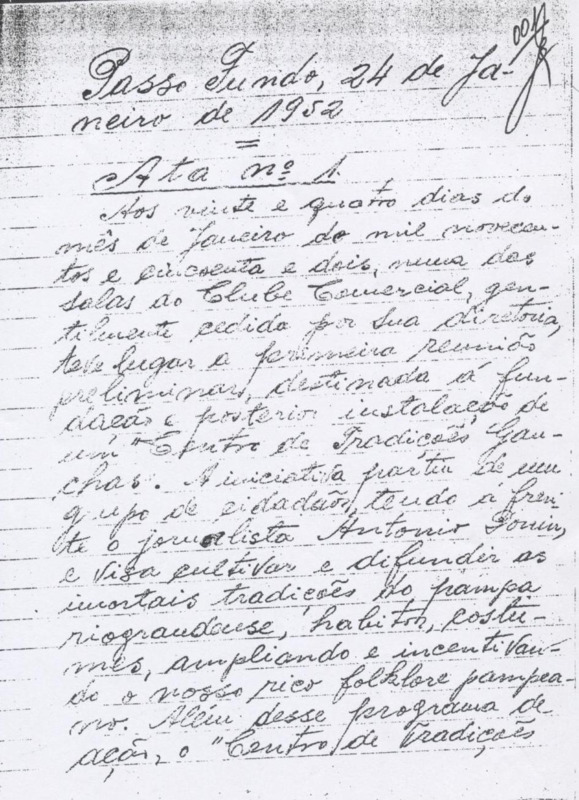 Passo Fundo, 24 de Ja-
neiro de 1952
=
Ata nº 1
Aos vinte e quatro dias do
mês de Janeiro do mil novecen-
tos e cincoenta e dois, numa das
salas do Clube Comercial, gen-
tilmente cedida por sua diretoria,
teve lugar a primeira reunião
preliminar, destinada á fun-
dação e posterior instalação de
um "Centro de Tradições Gau-
chas. A iniciativa partiu de um
grupo de cidadãos, tendo a fren-
te o jornalista Antonio
e visa cultivar e difundir as
imortais tradições do pampa
riograndense, habitos, costu-
mes, ampliando e incentivan-
do o nosso rico folklore pampea-
no. Além desse programa de
ação, o "Centro de Tradições